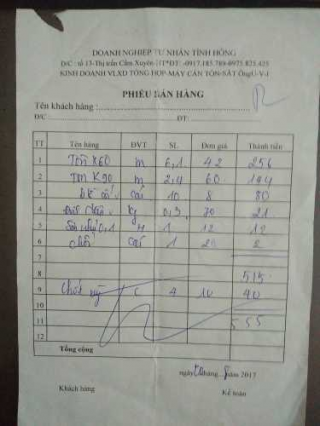 DOANH NGHIỆP TƯ NHÂN TÌNH HỒNG
Đ/C : số 13-Thị trấn Cẩm Xuyên-HT*ĐT: -0917.185.789-0975.821.425
KINH DOANH VLXD TỔNG HỢP-MÁY CÁN TÔN-SẮT Ống-U-V-I
PHIẾU BÁN HÀNG
Tên khách hàng :
Đ/C ĐT:
TT Tên hàng ĐVT SL Đơn giá Thành tiền
1 Tôn K60 m 6,1 42 256
2 Tôn K30 m 2,4 60 144
3 cái 10 8 80
4 Kg 0,3 70 21
5 0,1 H 1 12 12
6 cái 1 2
7
8 515
9 C 4 10 40
10
11 555
12
Tổng cộng
ngày tháng 8 năm 2017
Khách hàng Kế toán